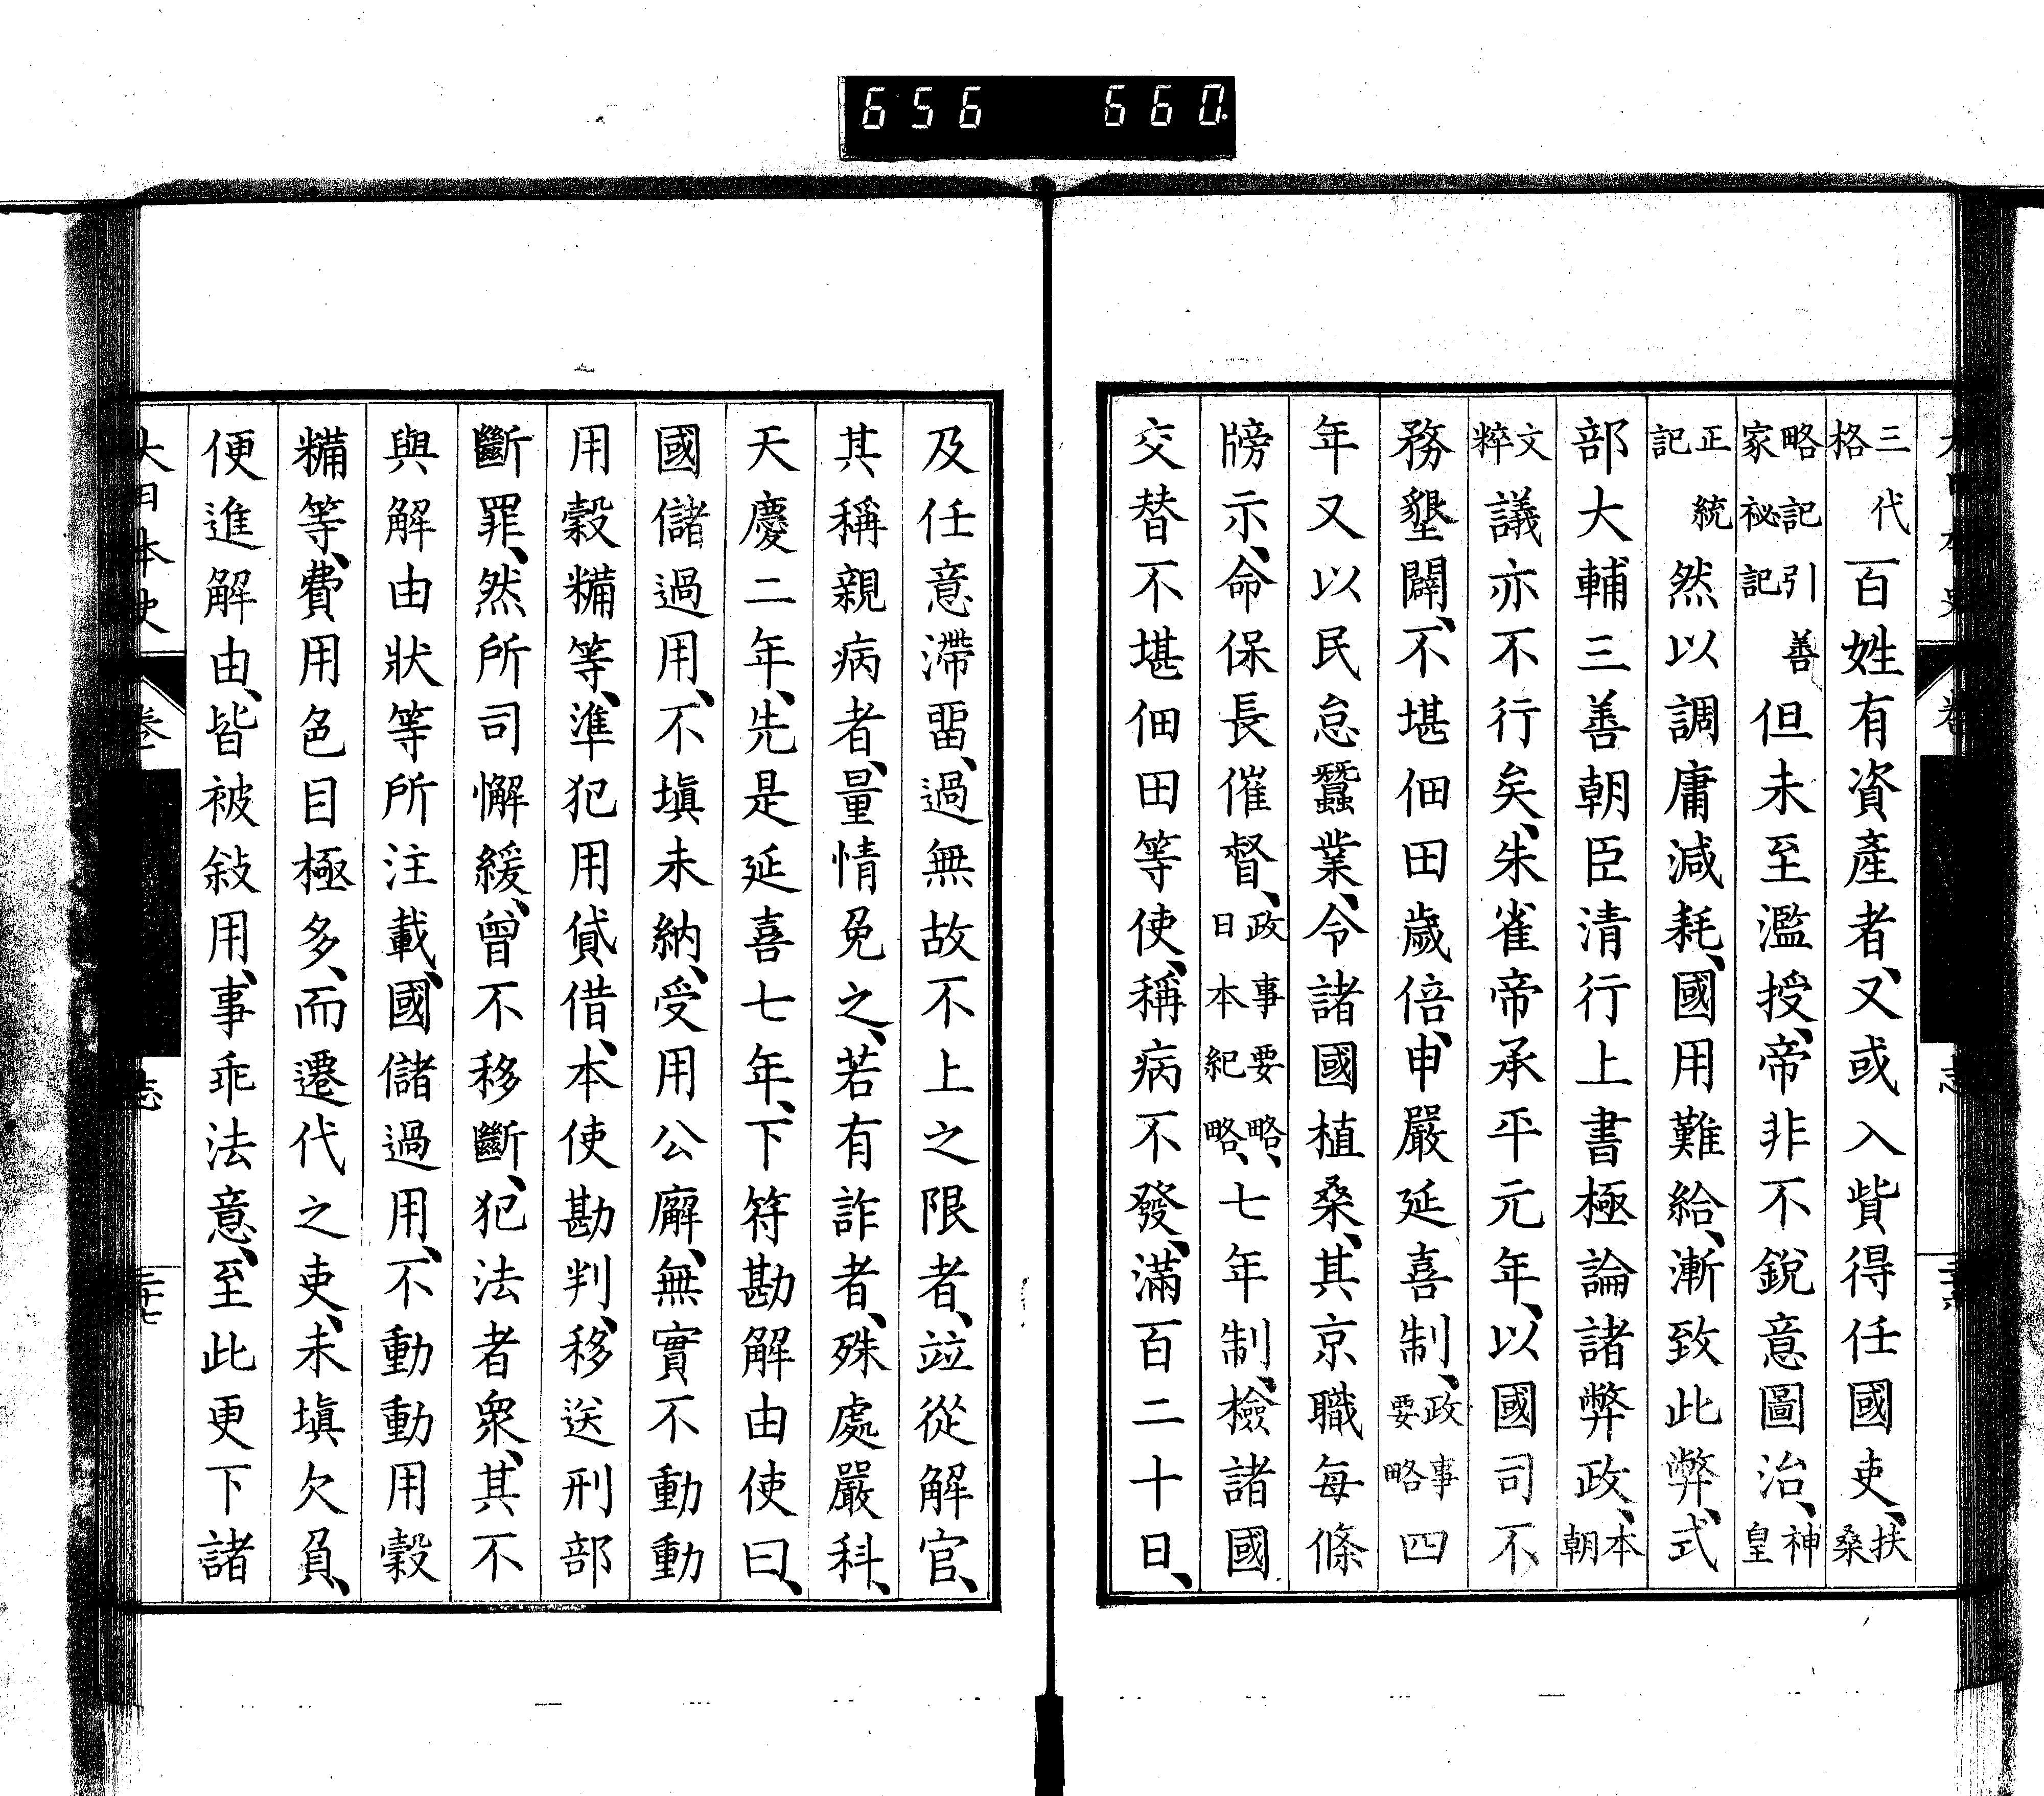 656 660
三代格百姓有資產者、又或入貲得任國吏、扶桑
略記引善家祕記但未至濫授、帝非不銳意圖治、神皇
正統記然以調庸減耗、國用難給、漸致此弊、式
部大輔三善朝臣清行上書極論諸弊政、本朝
文粹議亦不行矣、朱雀帝承平元年、以國司不
務墾闢、不堪佃田歲倍、申嚴延喜制、政事要略四
年又以民怠蠶業、令諸國植桑、其京職每條
牓示、命保長催督、政事要略、日本紀略、七年制、檢諸國
交替不堪佃田等使、稱病不發、滿百二十日、
及任意滯畱、過無故不上之限者、竝從解官、
其稱親病者、量情免之、若有詐者、殊處嚴科、
天慶二年、先是延喜七年、下符勘解由使曰、
國儲過用、不塡未納、受用公廨、無實不動動
用穀糒等、準犯用貸借、本使勘判、移送刑部
斷罪、然所司懈緩、曾不移斷、犯法者衆、其不
與解由狀等所注載、國儲過用、不動動用穀
糒等、費用色目極多、而遷代之吏、未塡欠負、
便進解由、皆被敍用、事乖法意、至此更下諸
大日本史 卷 志